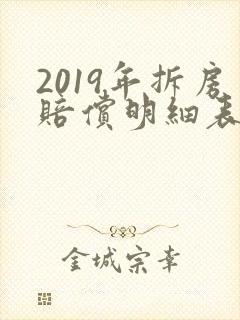 2019年拆房
赔偿明细表
金城宗幸